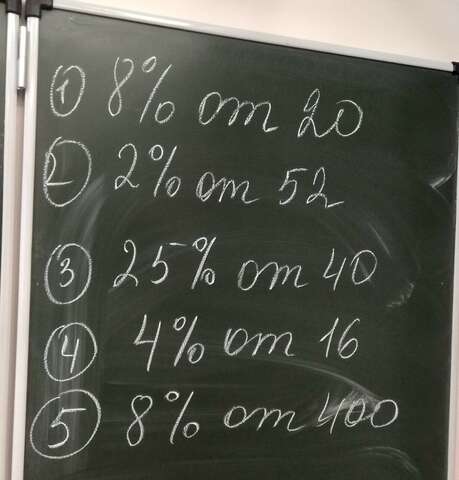 ① 8% от 20
② 2% от 52
③ 25% от 40
④ 4% от 16
⑤ 8% от 400